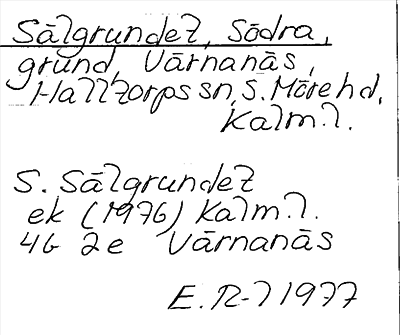 Sälgrundet, Södra,
grund, Värnanäs,
Halltorps sn, S. Möre hd,
Kalm. l.
S. Sälgrundet
ek (1976) Kalm. l.
4G 2e Värnanäs
E. R-l 1977